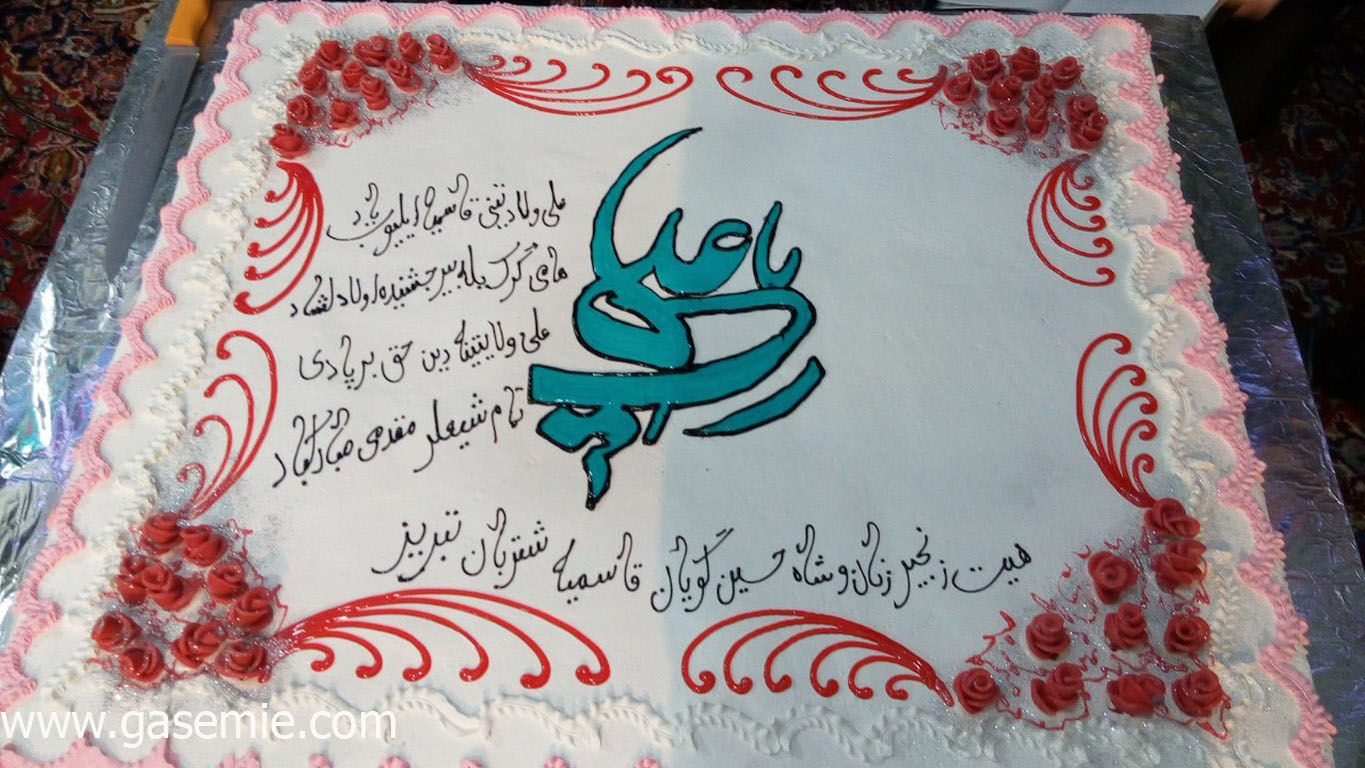 یا علی
علی ولادتینی قاسمیه ایلیوب یاد
هامی گرک بیله بیر جشنیده اولا دلشاد
علی ولایتینه دین حق برپادی
تمام شیعلر مقدمی مبارکباد
هیئت زنجیر زنان و شاه حسین گویان قاسمیه شتربان تبریز
www.gasemie.com